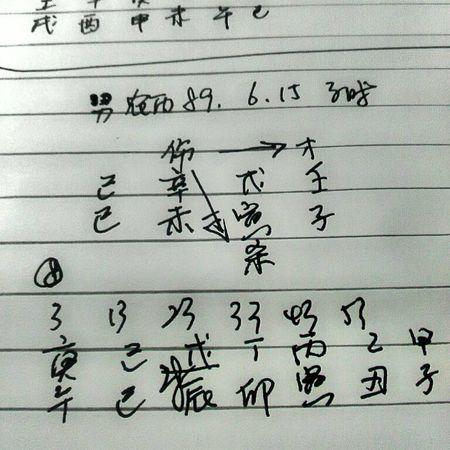 戌 酉 申 未 午 巳
男 农历 89. 6. 15 子时
伤 → 才
己 辛 戊 壬
巳 未 寅 子
杀
⑧
3 13 23 33 43 53
庚 己 戊 丁 丙 乙 甲
午 巳 辰 卯 寅 丑 子